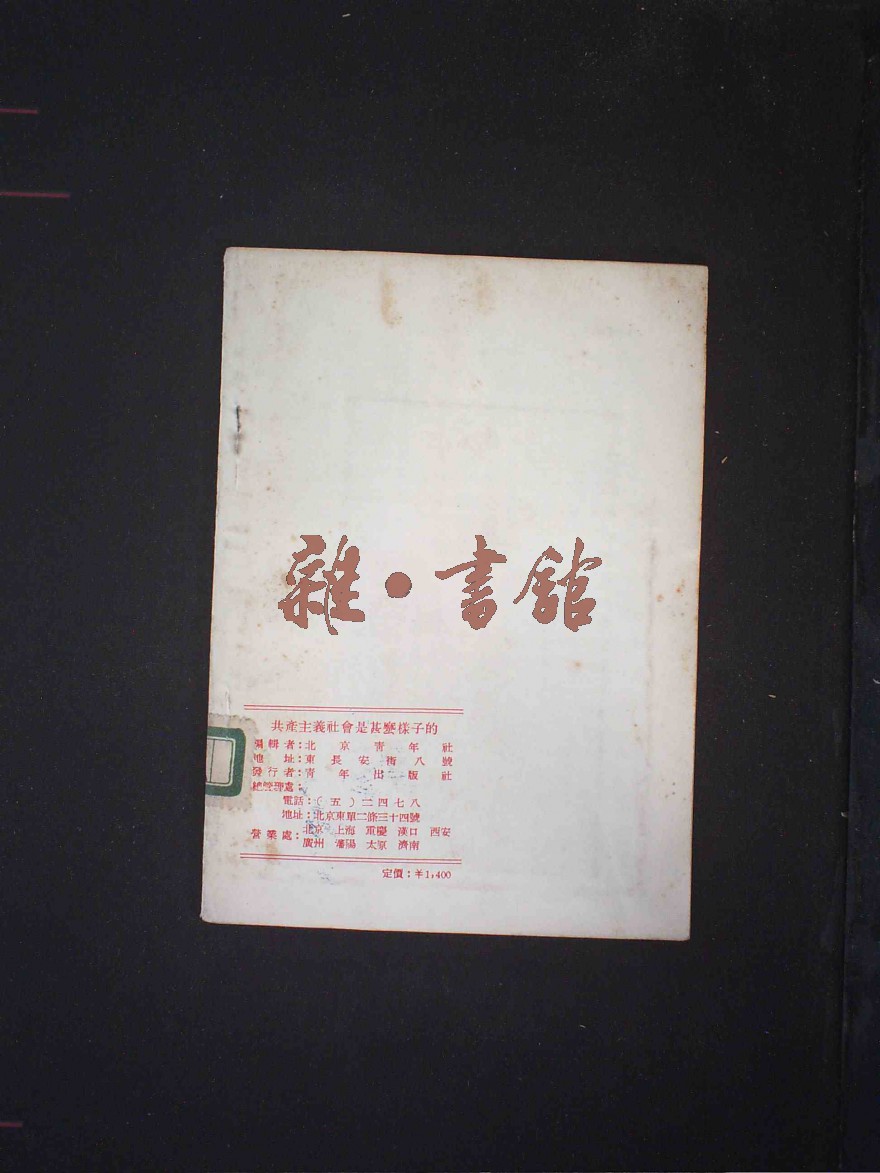 雜·書館
共產主義社會是甚麼樣子的
編輯者:北京青年社
地址:東長安街八號
發行者:青年出版社
總管理處:
電話:(五)二四七八
地址:北京東單二條三十四號
營業處:北京 上海 重慶 漢口 西安
廣州 瀋陽 太原 濟南
定價:¥1,400